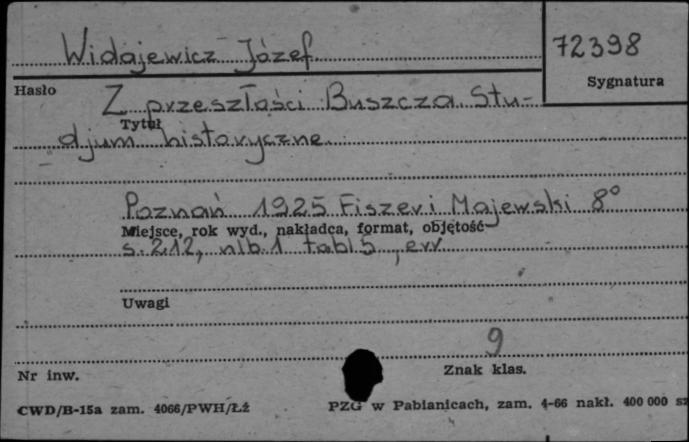 Widajewicz Józef
72398
Hasło
Sygnatura
Z przeszłości Buszcza Stu-
Tytuł
djum historyczne.
Poznań 1925 Fiszer i Majewski 8°
Miejsce, rok wyd., nakładca, format, objętość
s. 212, nlb. 1 tabl 5, err
Uwagi
9
Nr inw.
Znak klas.
CWD/B-15a zam. 4066/PWH/Łż
PZG w Pabianicach, zam. 4-66 nakł. 400 000 sz